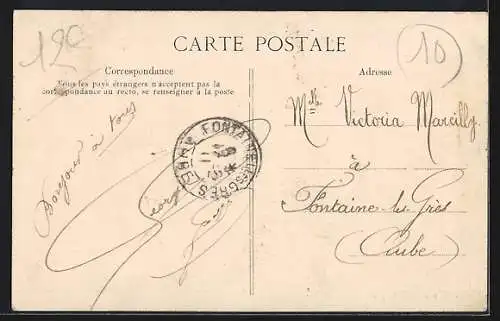 12c
10
CARTE POSTALE
Correspondance
Tous les pays étrangers n'acceptent pas la
correspondance au recto, se renseigner à la poste
Adresse
Bonjour à tous
FONTAINE LES GRÈS
Mlle Victoria Marcilly
à
Fontaine-les-Grès
(Aube)